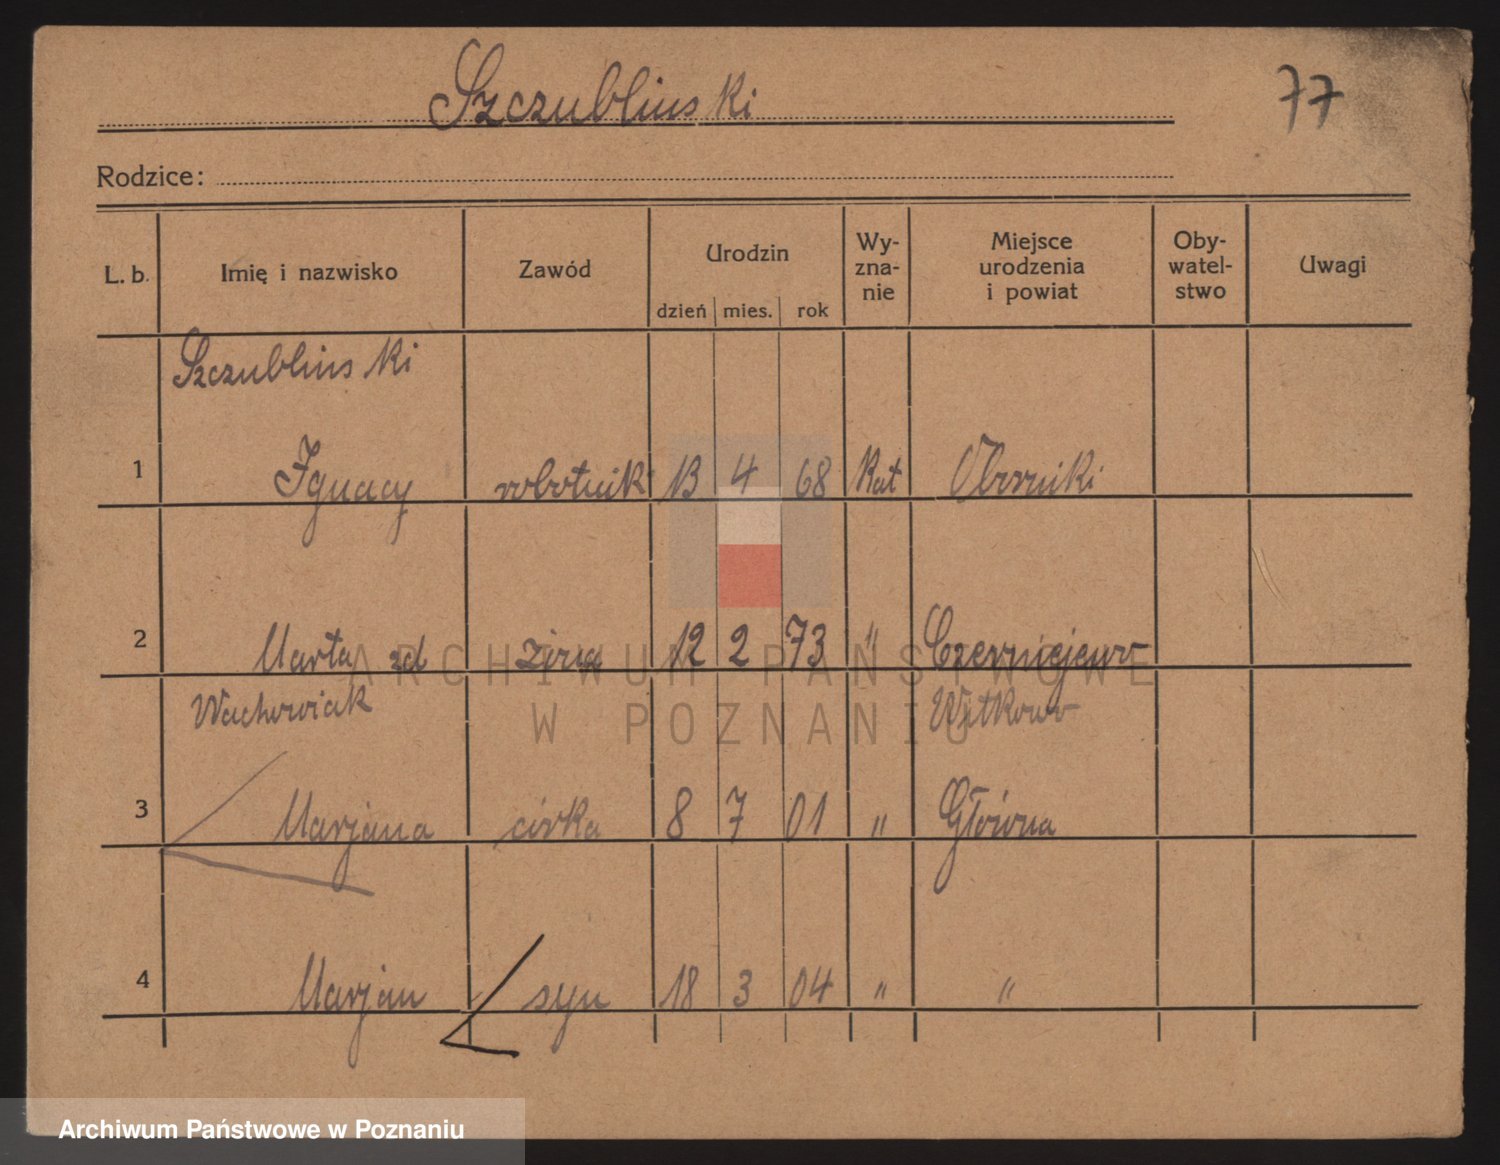 Szczublinski
77
Rodzice:
L. b. Imię i nazwisko Zawód Urodzin dzień mies. rok Wy-zna-nie Miejsce urodzenia i powiat Oby-watel-stwo Uwagi
Szczublinski
1 Ignacy robotnik 13 4 68 Kat Oborniki
2 Marta zd żona 12 2 73 " Czerniejewo
Wachowiak Witkowo
3 Marjana córka 8 7 01 " Główna
4 Marjan syn 18 3 04 " "
ARCHIWUM PAŃSTWOWE
W POZNANIU
Archiwum Państwowe w Poznaniu